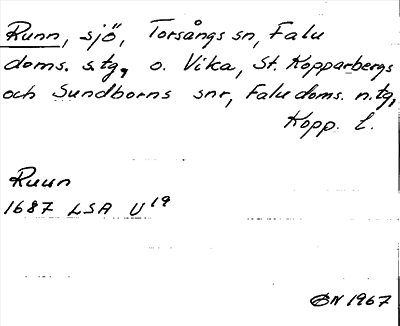 Runn, sjö, Torsångs sn, Falu
doms. s.tg, o. Vika, St. Kopparbergs
och Sundborns snr, Falu doms. n.tg,
Kopp. l.
Ruun
1687 LSA U 19
ÖN 1967